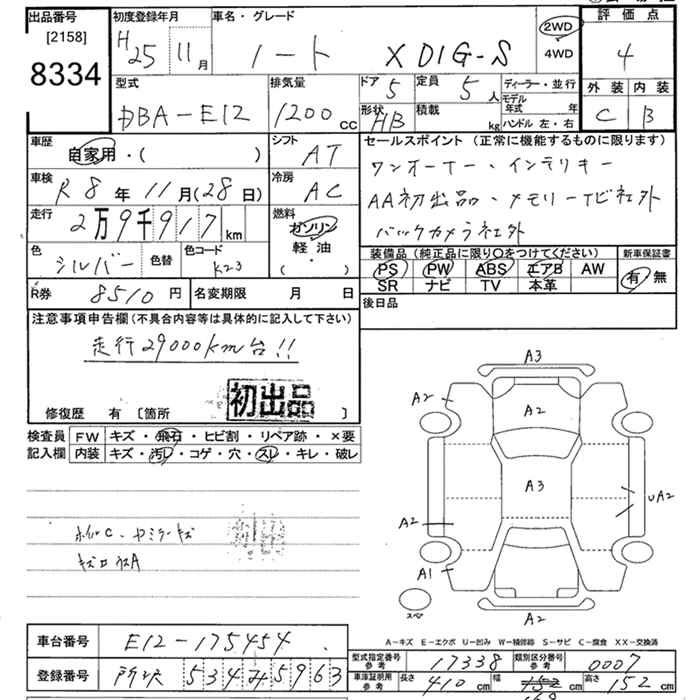 出品番号 [2158] 8334
初度登録年月 H25 11月
車名・グレード ノート X DIG-S
2WD 4WD
評価点 4
外装 C 内装 B
型式 DBA-E12
排気量 1200 cc
ドア 5
定員 5人
形状 HB
積載 kg
ディーラー・並行
モデル年式 年
ハンドル 左・右
車歴 自家用・( )
シフト AT
車検 R8年11月(28日)
冷房 AC
走行 2万9千917 km
燃料 ガソリン 軽・油 ( )
色 シルバー 色替
色コード K23
R券 8510円
名変期限 月 日
セールスポイント (正常に機能するものに限ります)
ワンオーナー・インテリキー
AA初出品・メモリーTV社外
バックカメラ社外
装備品 (純正品に限り○をつけてください)
PS PW ABS エアB AW
SR ナビ TV 本革
新車保証書 有 無
後日品
注意事項申告欄 (不具合内容等は具体的に記入して下さい)
走行29000km台!!
初出品
修復歴 有 [箇所 ]
検査員記入欄
FW キズ・飛石・ヒビ割・リペア跡・×要
内装 キズ・汚レ・コゲ・穴・スレ・キレ・破レ
A3
A2
A2
A3
A2
UA2
A1
スペア
A2
A-キズ E-エクボ U-凹み W-補修跡 S-サビ C-腐食 XX-交換済
車台番号 E12-175454
登録番号 所沢 534 み 5963
型式指定番号 参考 17338
類別区分番号 参考 0007
車庫証明用 参考 長さ 410 cm 幅 cm 高さ 152 cm
169